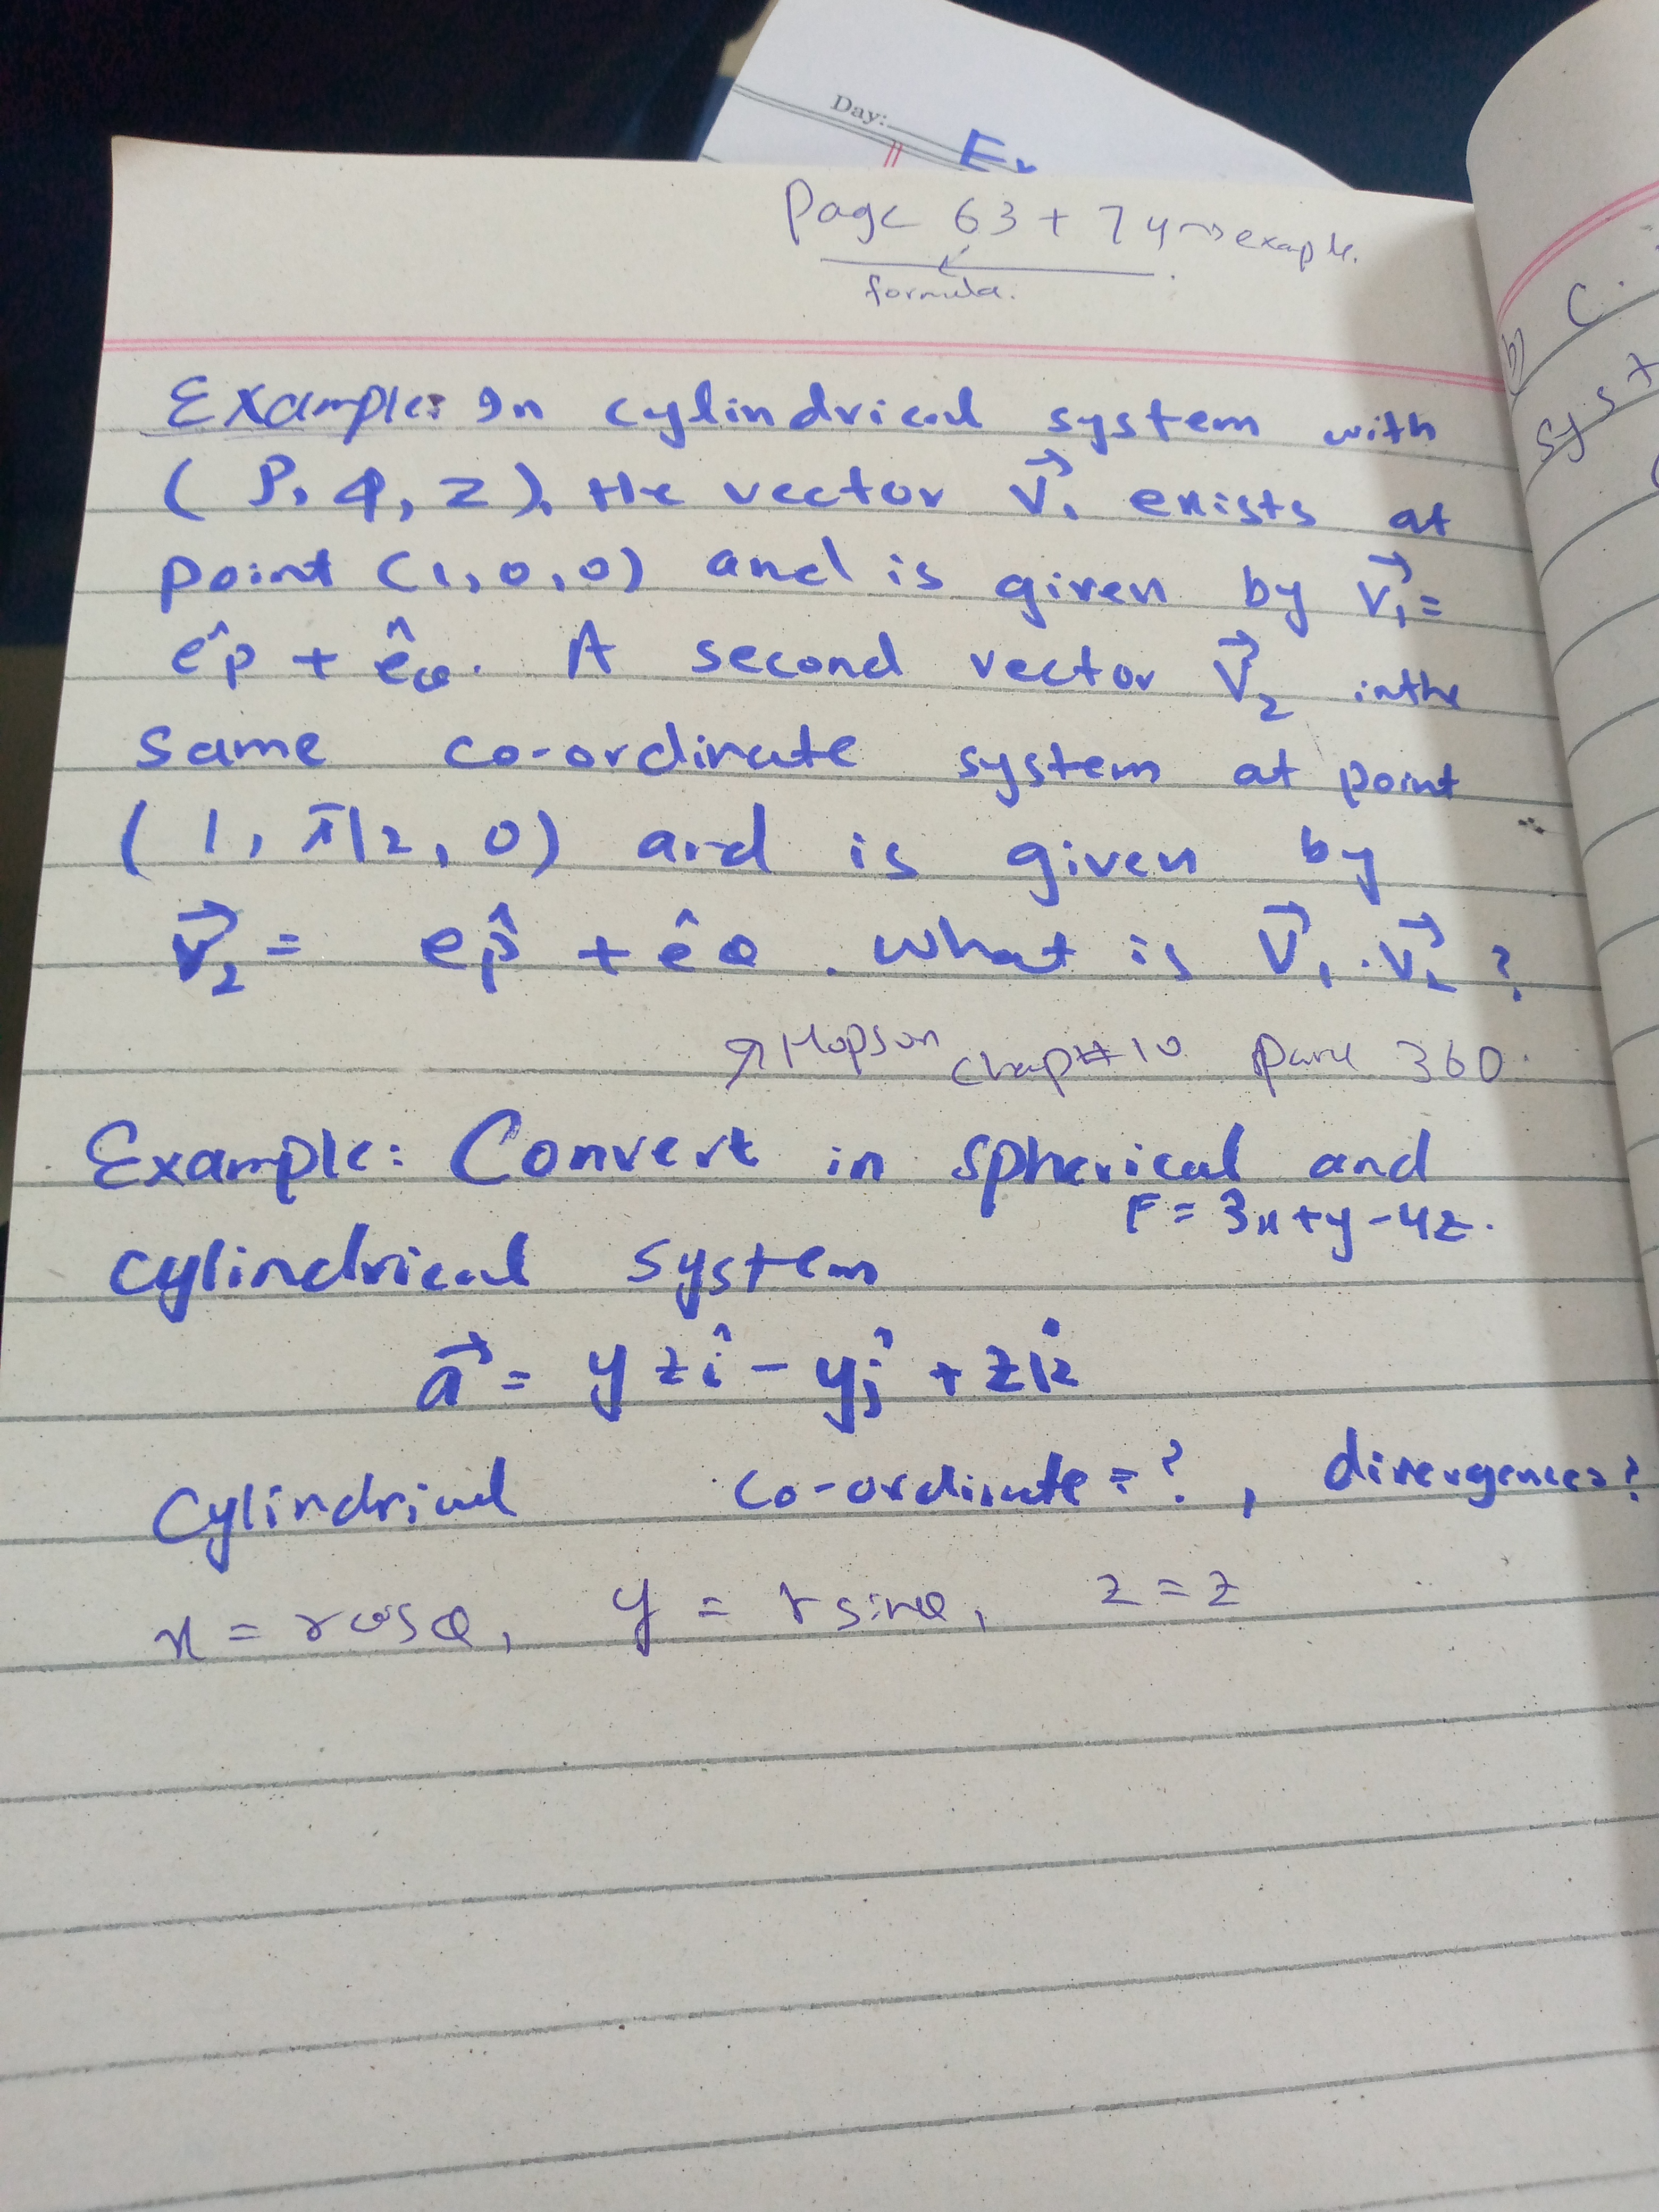 Day:
Page 63 + 74 → exaple.
formula.
Example: In cylindrical system with
(ρ, φ, z), the vector V⃗₁ exists at
point (1, 0, 0) and is given by V⃗₁ =
êρ + êφ. A second vector V⃗₂ inthe
same co-ordinate system at point
(1, π/2, 0) and is given by
V⃗₂ = êρ + êφ. What is V⃗₁ · V⃗₂ ?
Hopson chap# 10 360
Example: Convert in spherical and
F = 3x + y - 4z.
cylindrical system
a⃗ = yzî - yĵ + zk̂
Cylindrical co-ordinate = ?, divergences?
x = rcosθ, y = rsinθ, z = z
b)
C.
syst